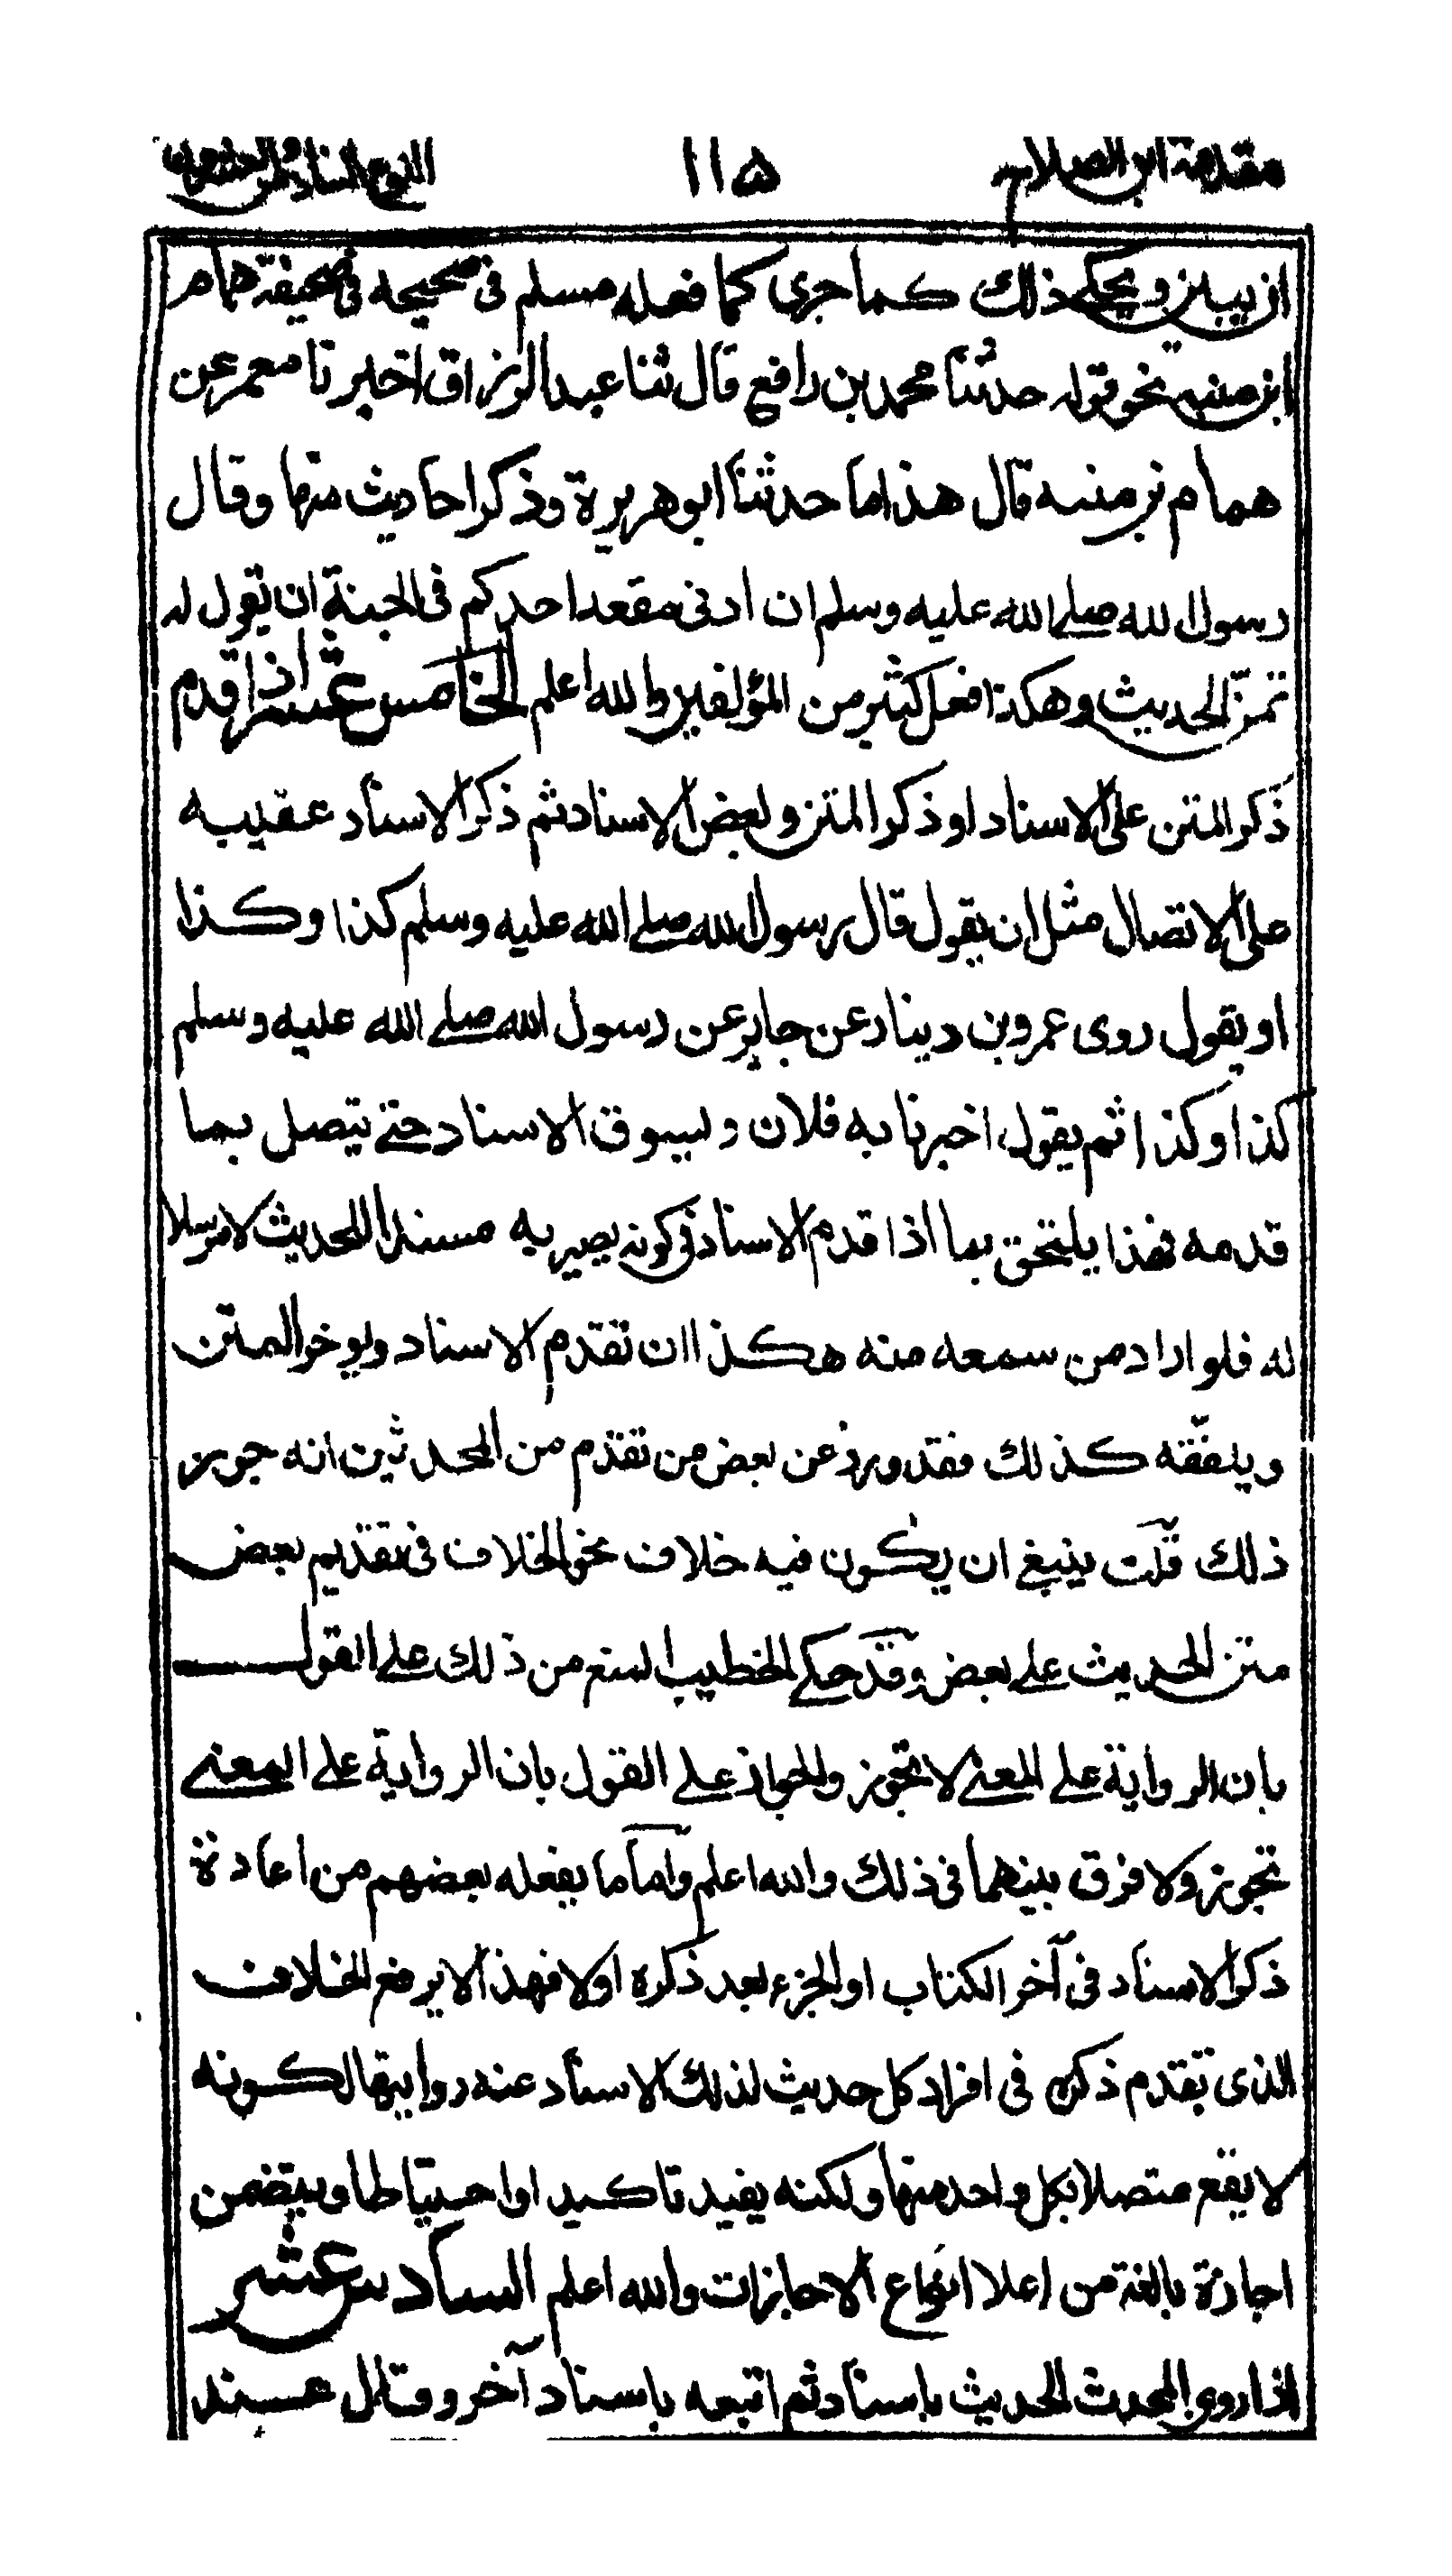 مقدمة ابن الصلاح ١١٥ النوع السادس والعشرون
ان يبين ويحكى ذلك كما جرى كما فعله مسلم فى صحيحه فى صحيفة همام
ابن منبه نحو قوله حدثنا محمد بن رافع قال ثنا عبد الرزاق اخبرنا معمر عن
همام بن منبه قال هذا ما حدثنا ابو هريرة وذكر احاديث منها وقال
رسول الله صلے الله عليه وسلم ان ادنى مقعد احدكم فى الجنة ان يقول له
تمنّ الحديث وهكذا فعل كثير من المؤلفين والله اعلم الخامس عشر اذا قدم
ذكر المتن على الاسناد او ذكر المتن وبعض الاسناد ثم ذكر الاسناد عقيبه
على الاتصال مثل ان يقول قال رسول الله صلے الله عليه وسلم كذا وكذا
او يقول روى عمرو بن دينار عن جابر عن رسول الله صلے الله عليه وسلم
كذا وكذا ثم يقول اخبرنا به فلان ويسوق الاسناد حتے يتصل بما
قدمه فهذا يلتحق بما اذا قدم الاسناد فى كونه يصير به مسندا للحديث لا مرسلا
له فلو اراد من سمعه منه هكذا ان تقدم الاسناد ويوخر المتن
ويلفقه كذلك فقد ورد عن بعض من تقدم من المحدثين انه جوز
ذلك قلت ينبغ ان يكون فيه خلاف نحو الخلاف فى تقديم بعض
متن الحديث علے بعض وقد حكے الخطيب المنع من ذلك علے القول
بان الرواية علے المعنے لا تجوز والجواز علے القول بان الرواية علے المعنے
تجوز ولا فرق بينهما فى ذلك والله اعلم واما ما يفعله بعضهم من اعادة
ذكر الاسناد فى آخر الكتاب او الجزء بعد ذكره اولا فهذا لا يرفع الخلاف
الذى تقدم ذكره فى افراد كل حديث لذلك الاسناد عند روايتها لكونه
لا يقع متصلا بكل واحد منها ولكنه يفيد تاكيد او احتياطا ويتضمن
اجازة بالغة من اعلا انواع الاجازات والله اعلم السادس عشر
اذا روى المحدث الحديث باسناد ثم اتبعه باسناد آخر وقال عند